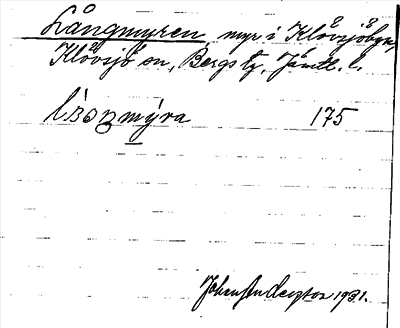 Långmyren myr i Klövsjöbyn,
Klövsjö sn, Bergs tg, Jämtl. l.
mýra 175
Johan Anderzon 1931.